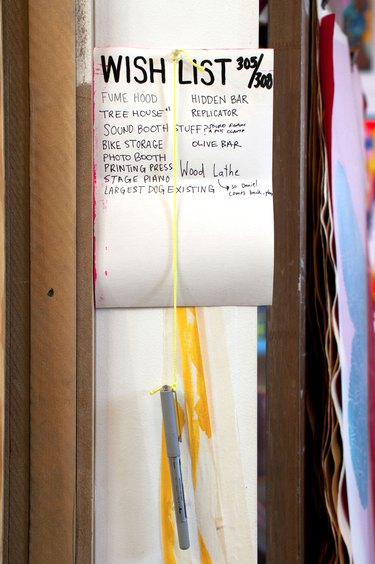 WISH LIST 305/308
FUME HOOD
TREE HOUSE
SOUND BOOTH STUFF?
BIKE STORAGE
PHOTO BOOTH
PRINTING PRESS
STAGE PIANO
LARGEST DOG EXISTING
HIDDEN BAR
REPLICATOR
OLIVE BAR
Wood Lathe
so Daniel
comes back